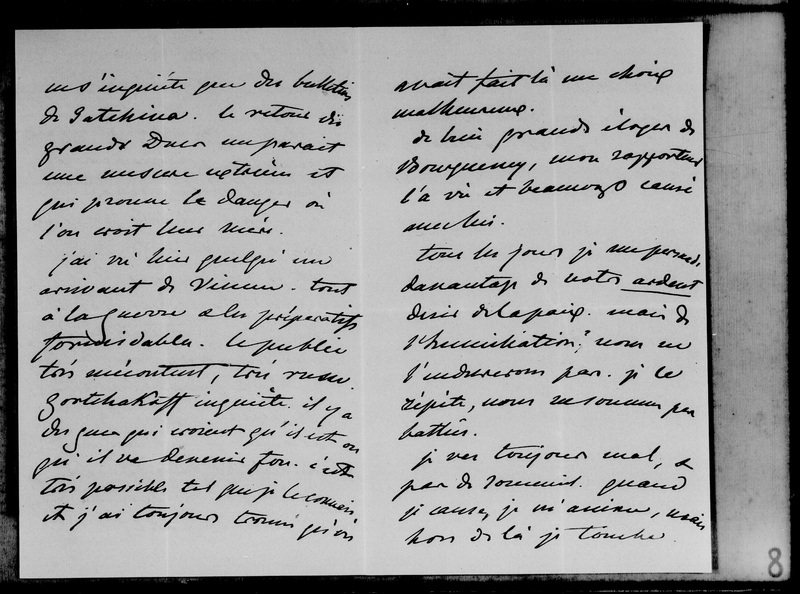 m'inquiète que des bulletins
de Gatchina. le retour des
grands Ducs me parait
une mesure extrême et
qui prouve le danger où
l'on croit leur mère.
j'ai vu hier quelqu'un
arrivant de Vienne. tout
à la guerre & les préparatifs
formidables. le public
très mécontent, très russe.
Gortchakoff inquiète. il y a
des gens qui croient qu'il est ou
qu'il va devenir fou. c'est
très possible tel que je le connais
et j'ai toujours trouvé qu'on
avait fait là un choix
malheureux.
de bien grands éloges de
Bourqueney, mon rapporteur
l'a vu et beaucoup causé
avec lui.
tous les jours je me persuade
davantage de notre ardent
désir de la paix. mais de
l'humiliation, nous ne
l'endurerons pas. je le
répète, nous ne sommes pas
battus.
je vais toujours mal, &
pas de sommeil. quand
je cause, je m'anime, mais
hors de là je tombe.
8